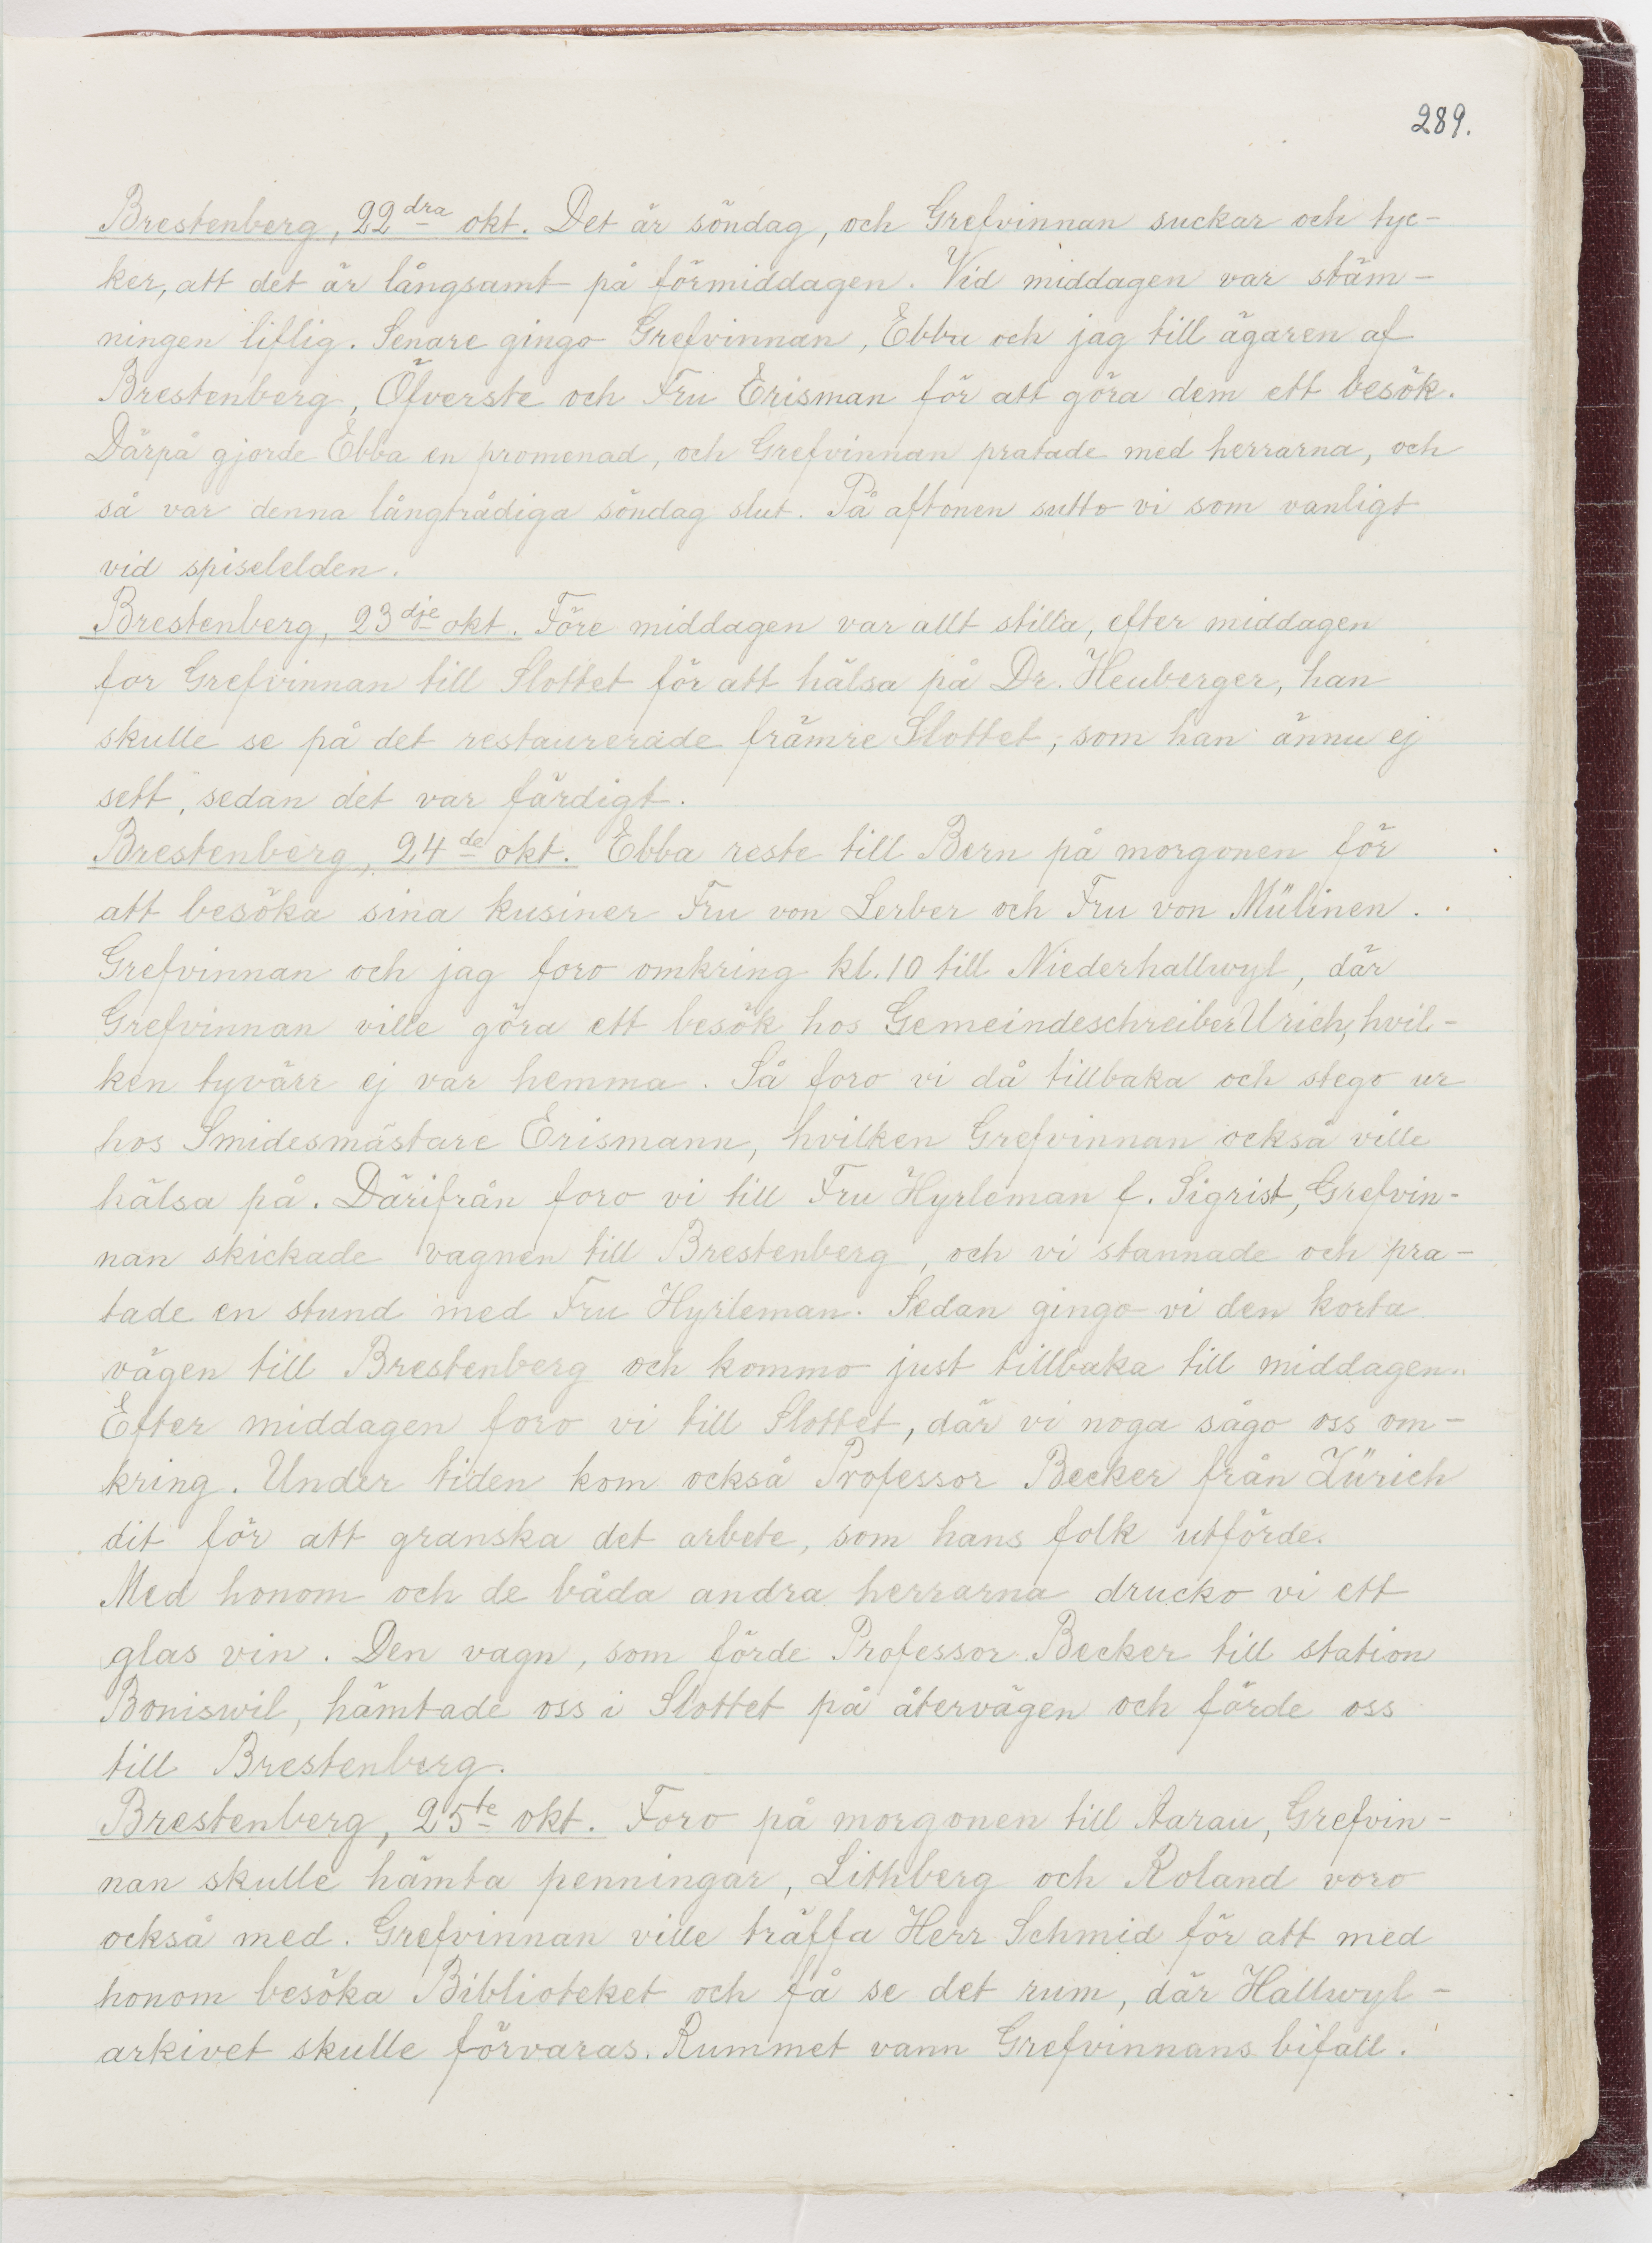 289.
Brestenberg, 22dra okt. Det är söndag, och Grefvinnan suckar och tyc-
ker, att det är långsamt på förmiddagen. Vid middagen var stäm-
ningen liflig. Senare gingo Grefvinnan, Ebba och jag till ägaren af
Brestenberg, Öfverste och Fru Erisman för att göra dem ett besök.
Därpå gjorde Ebba en promenad, och Grefvinnan pratade med herrarna, och
så var denna långtrådiga söndag slut. På aftonen sutto vi som vanligt
vid spiselelden.
Brestenberg, 23dje okt. Före middagen var allt stilla, efter middagen
for Grefvinnan till Slottet för att hälsa på Dr. Heuberger, han
skulle se på det restaurerade främre Slottet, som han ännu ej
sett, sedan det var färdigt.
Brestenberg, 24de okt. Ebba reste till Bern på morgonen för
att besöka sina kusiner Fru von Lerber och Fru von Mülinen.
Grefvinnan och jag foro omkring kl. 10 till Niederhallwyl, där
Grefvinnan ville göra ett besök hos Gemeindeschreiber Urich, hvil-
ken tyvärr ej var hemma. Så foro vi då tillbaka och stego ur
hos Smidesmästare Erismann, hvilken Grefvinnan också ville
hälsa på. Därifrån foro vi till Fru Hyrleman f. Sigrist, Grefvin-
nan skickade vagnen till Brestenberg, och vi stannade och pra-
tade en stund med Fru Hyrleman. Sedan gingo vi den korta
vägen till Brestenberg och kommo just tillbaka till middagen.
Efter middagen foro vi till Slottet, där vi noga sågo oss om-
kring. Under tiden kom också Professor Becker från Zürich
dit för att granska det arbete, som hans folk utförde.
Med honom och de båda andra herrarna drucko vi ett
glas vin. Den vagn, som förde Professor Becker till station
Boniswil, hämtade oss i Slottet på återvägen och förde oss
till Brestenberg.
Brestenberg, 25te okt. Foro på morgonen till Aarau, Grefvin-
nan skulle hämta penningar, Lithberg och Roland voro
också med. Grefvinnan ville träffa Herr Schmid för att med
honom besöka Biblioteket och få se det rum, där Hallwyl-
arkivet skulle förvaras. Rummet vann Grefvinnans bifall.